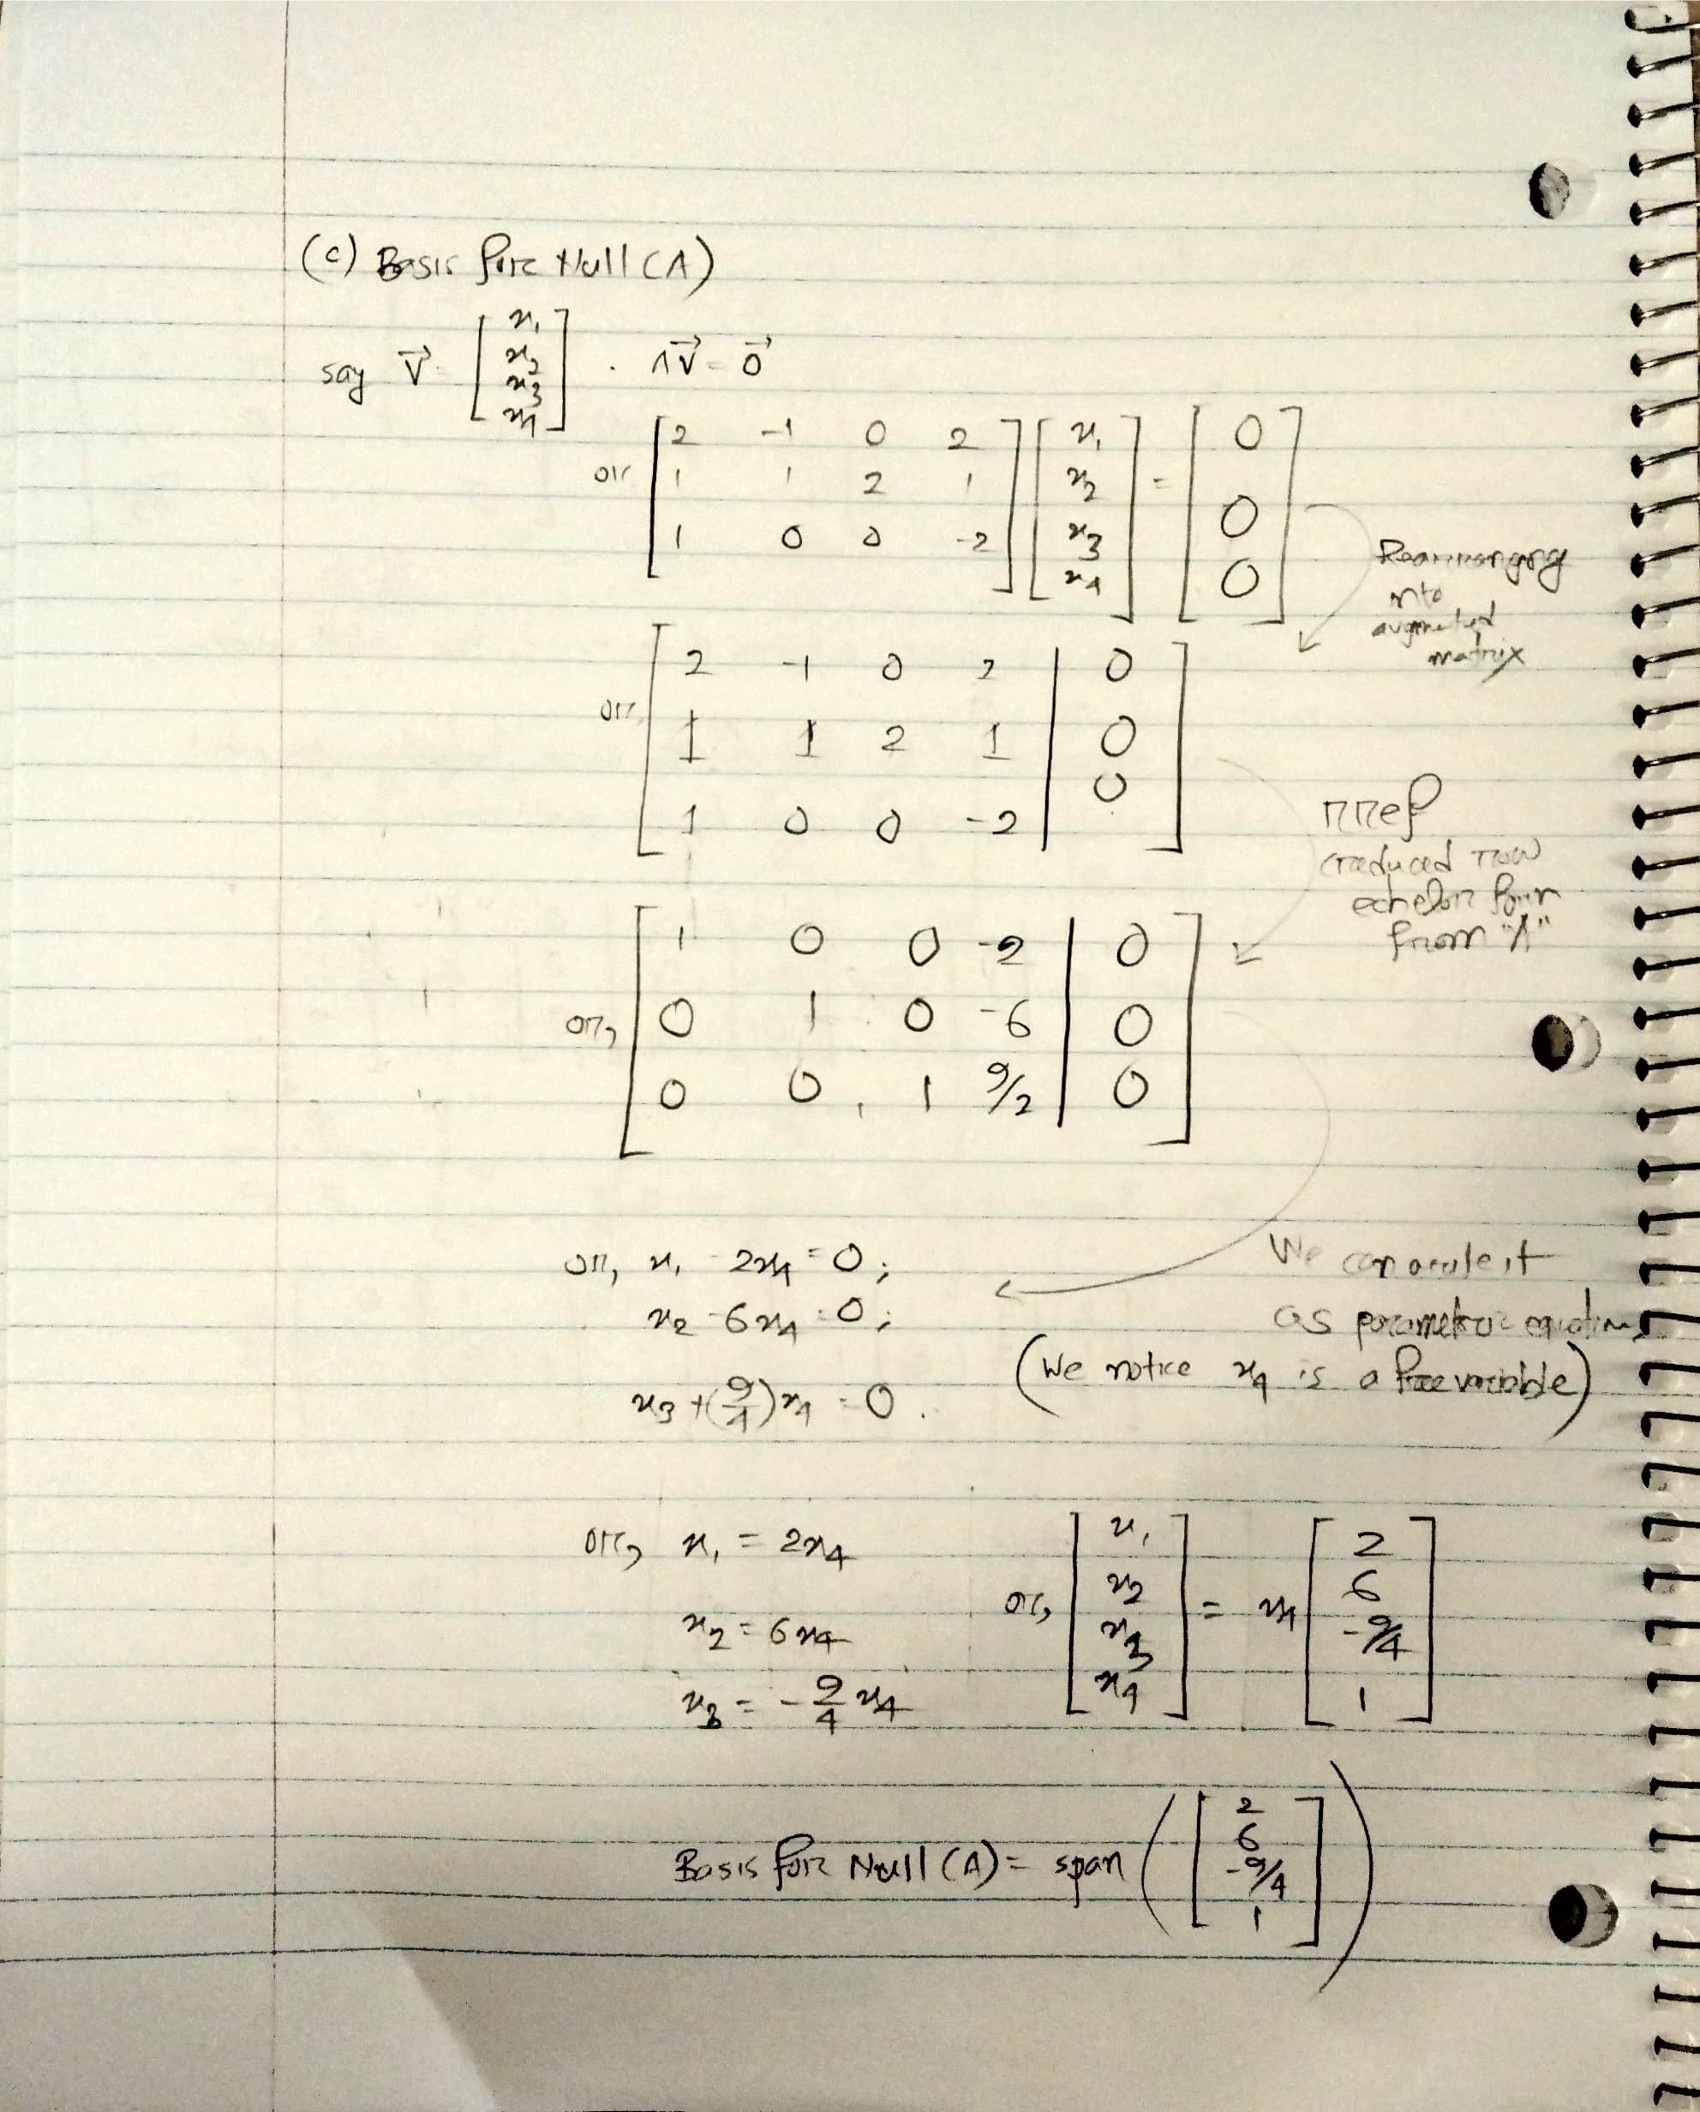 (c) Basis for Null (A)
say v⃗ = [x₁ x₂ x₃ x₄] . Av⃗ = 0⃗
or [2 -1 0 2
1 1 2 1
1 0 0 -2] [x₁ x₂ x₃ x₄] = [0 0 0]
Rearranging
into
augmented
matrix
or, [2 -1 0 2 | 0
1 1 2 1 | 0
1 0 0 -2 | 0]
rref
(reduced row
echelon form
from "A"
or, [1 0 0 -2 | 0
0 1 0 -6 | 0
0 0 1 9/2 | 0]
or, x₁ - 2x₄ = 0;
x₂ - 6x₄ = 0;
x₃ + (9/4)x₄ = 0.
We can write it
as parametric equations
(We notice x₄ is a free variable)
or, x₁ = 2x₄
x₂ = 6x₄
x₃ = -9/4 x₄
or, [x₁ x₂ x₃ x₄] = x₄ [2 6 -9/4 1]
Basis for Null (A) = span ([2 6 -9/4 1])